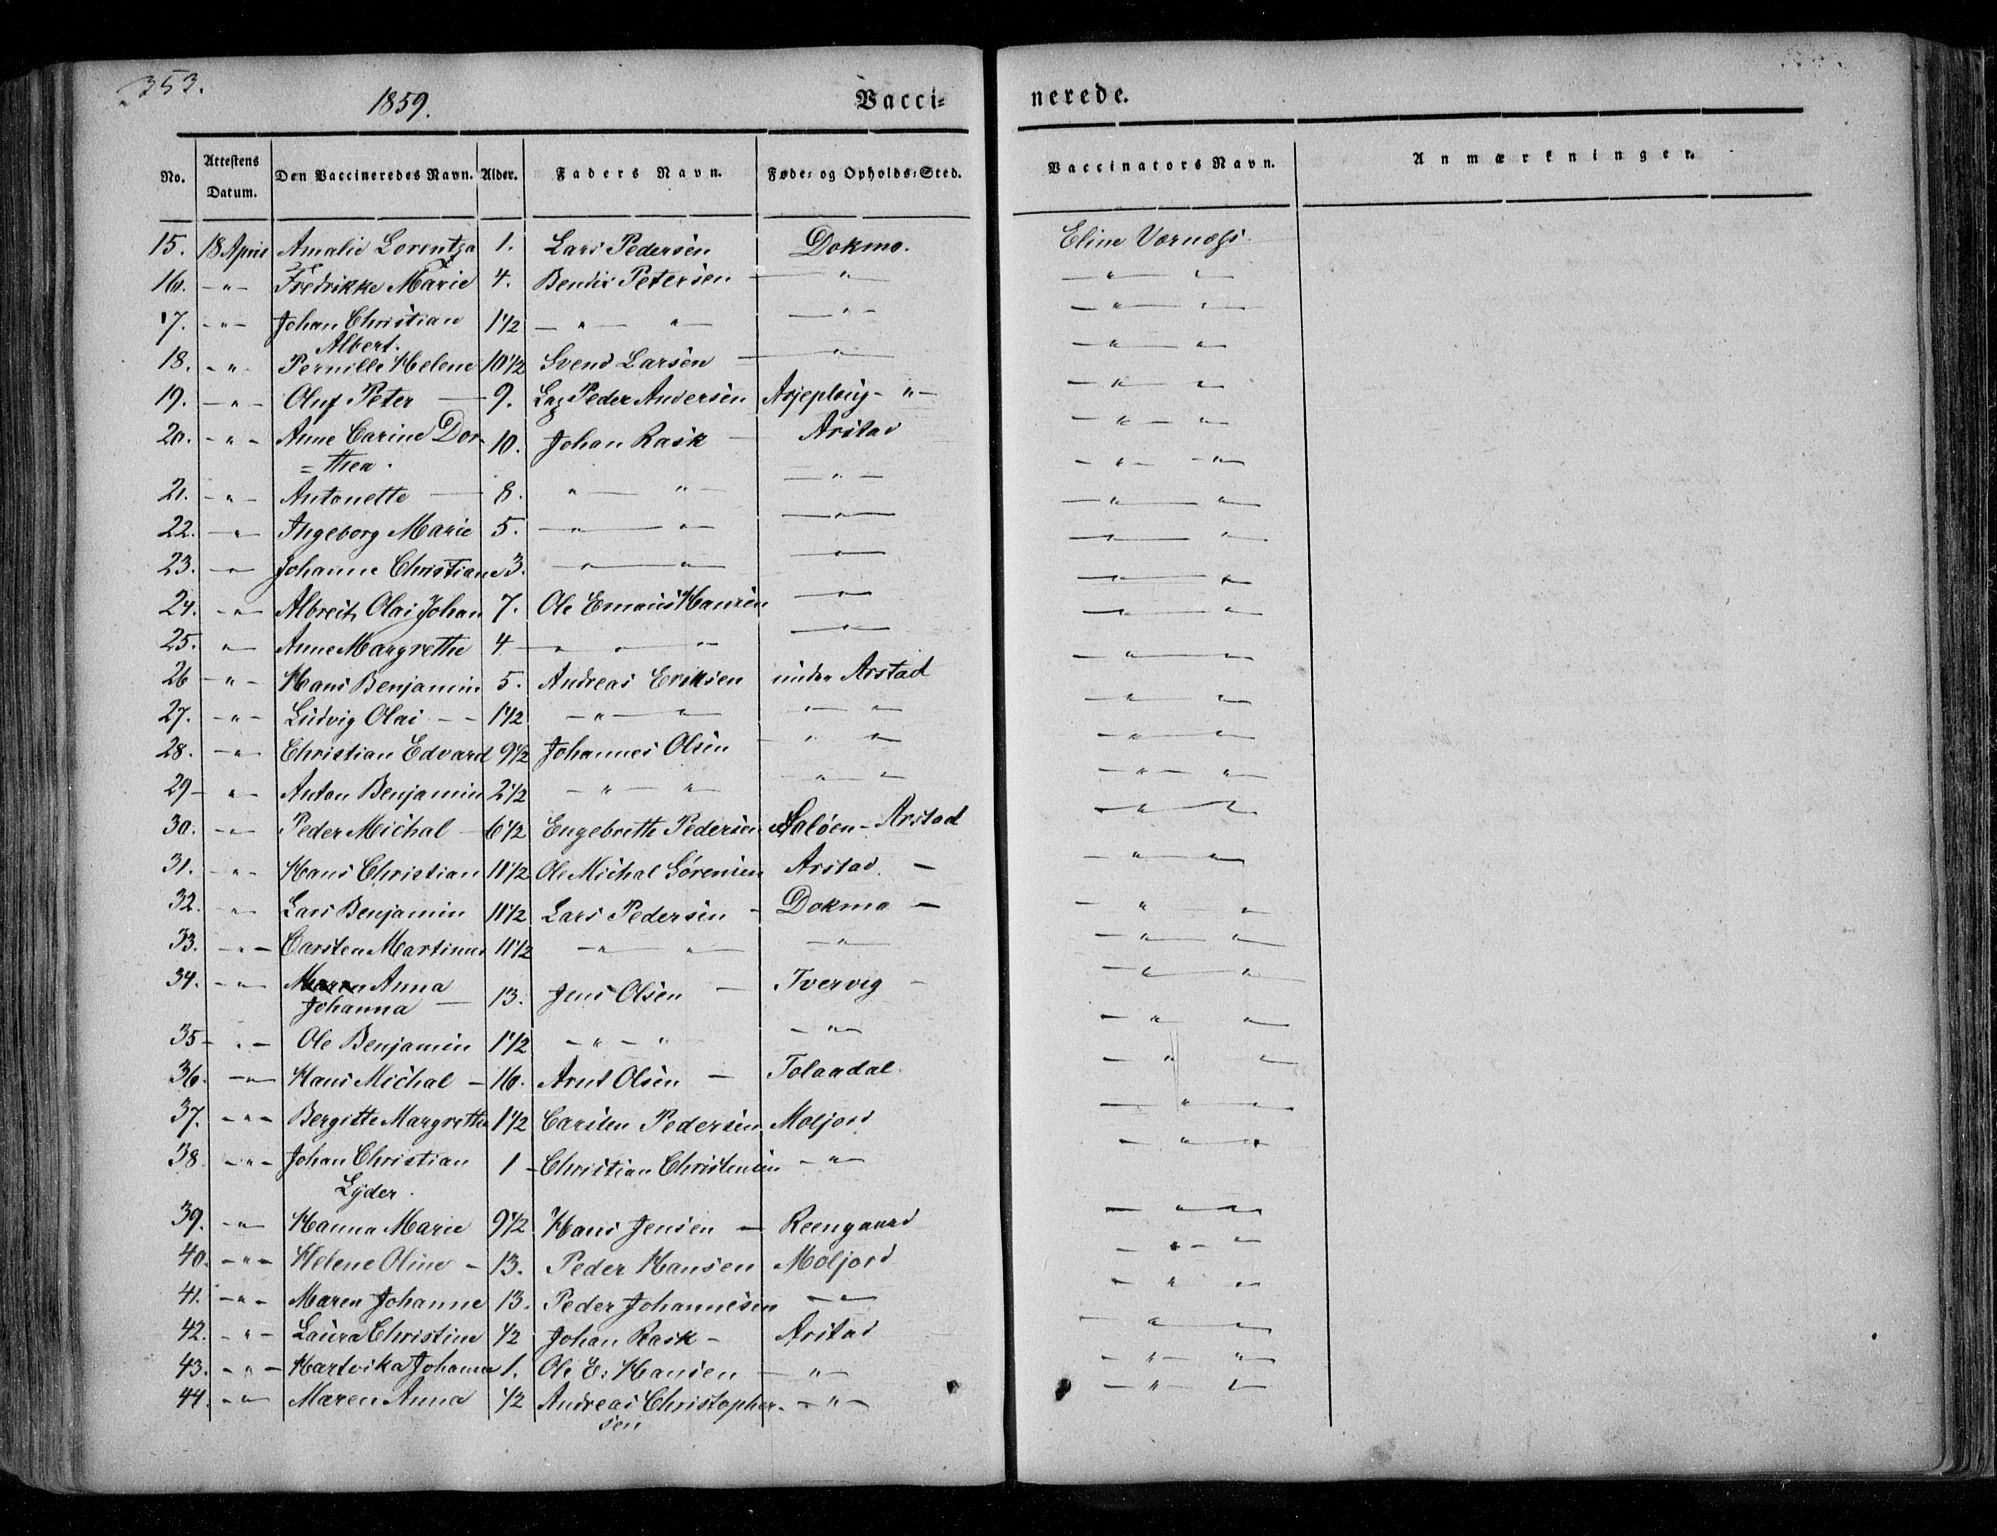 353.
1859.
Vacci- nerede.
No. Attestens Datum. Den Vaccineredes Navn. Alder. Faders Navn. Føde- og Opholds-Sted. Vaccinators Navn. Anmærkninger.
15. 18 April Amalie Lorentza 1. Lars Pedersen Dokmo. Eline Værnæss
16. -"- Fredrikke Marie 4. Bendix Petersen -"- -"-"-
17. -"- Johan Christian 1 1/2 -"-"- -"- -"-"-
Albert.
18. -"- Pernille Helene 10 1/2 Svend Larsen -"- -"-"-
19. -"- Oluf Peter 9. Lap Peder Andersen Arjeploug -"- -"-"-
20. -"- Anne Carine Dor- 10. Johan Rask Arstad -"-"-
=thea.
21. -"- Antonette 8. "-"- -"- -"-"-
22. -"- Ingeborg Marie 5. -"-"- -"- -"-"-
23. -"- Johanne Christiane 3. -"-"- -"- -"-"-
24. -"- Albreit Olai Johan 7. Ole Emaus Hansen -"- -"-"-
25. -"- Anne Margrethe 4 -"-"- -"- -"-"-
26 -"- Hans Benjamin 5. Andreas Eriksen under Arstad -"-"-
27. -"- Ludvig Olai - - 1 1/2 -"-"- "-"- -"-"-
28. -"- Christian Edvard 9 1/2 Johannes Olsen -"-"- -"-"-
29 -"- Anton Benjamin 2 1/2 -"-"- -"-"- -"-"-
30. -"- Peder Michal 6 1/2 Engebreth Pedersen Saløen - Arstad -"-"-
31. -"- Hans Christian 11 1/2 Ole Michal Sørensen Arstad. - -"-"-
32. -"- Lars Benjamin 11 1/2 Lars Pedersen - Dokmo - -"-"-
33. -"- Carsten Martinus 11 1/2 -"-"- -"- -"-"-
34. -"- Maren Anna
Johanna 13. Jens Olsen - Tvervig - -"-"-
35 -"- Ole Benjamin 1 1/2 -"-"- -"- -"-"-
36. -"- Hans Michal - 16. Arnt Olsen - Tolaadal. -"-"-
37. -"- Bergitte Margrethe 1 1/2 Carsten Pedersen Moljord -"-"-
38 -"- Johan Christian 1 - Christian Christensen -"- -"-"-
Lyder.
39. -"- Hanna Marie 9 1/2 Hans Jensen - Reengaard -"-"-
40. -"- Helene Oline - 13. Peder Hansen Moljord -"-"-
41. -"- Maren Johanne 13. Peder Johannesen -"- -"-"-
42. -"- Laura Christine 1/2 Johan Rask - Arstad -"-"-
43. -"- Hartvika Johanna 1. Ole E. Hansen -"- -"-"-
44. -"- Maren Anna 1/2 Andreas Christopher- -"- -"-"-
sen